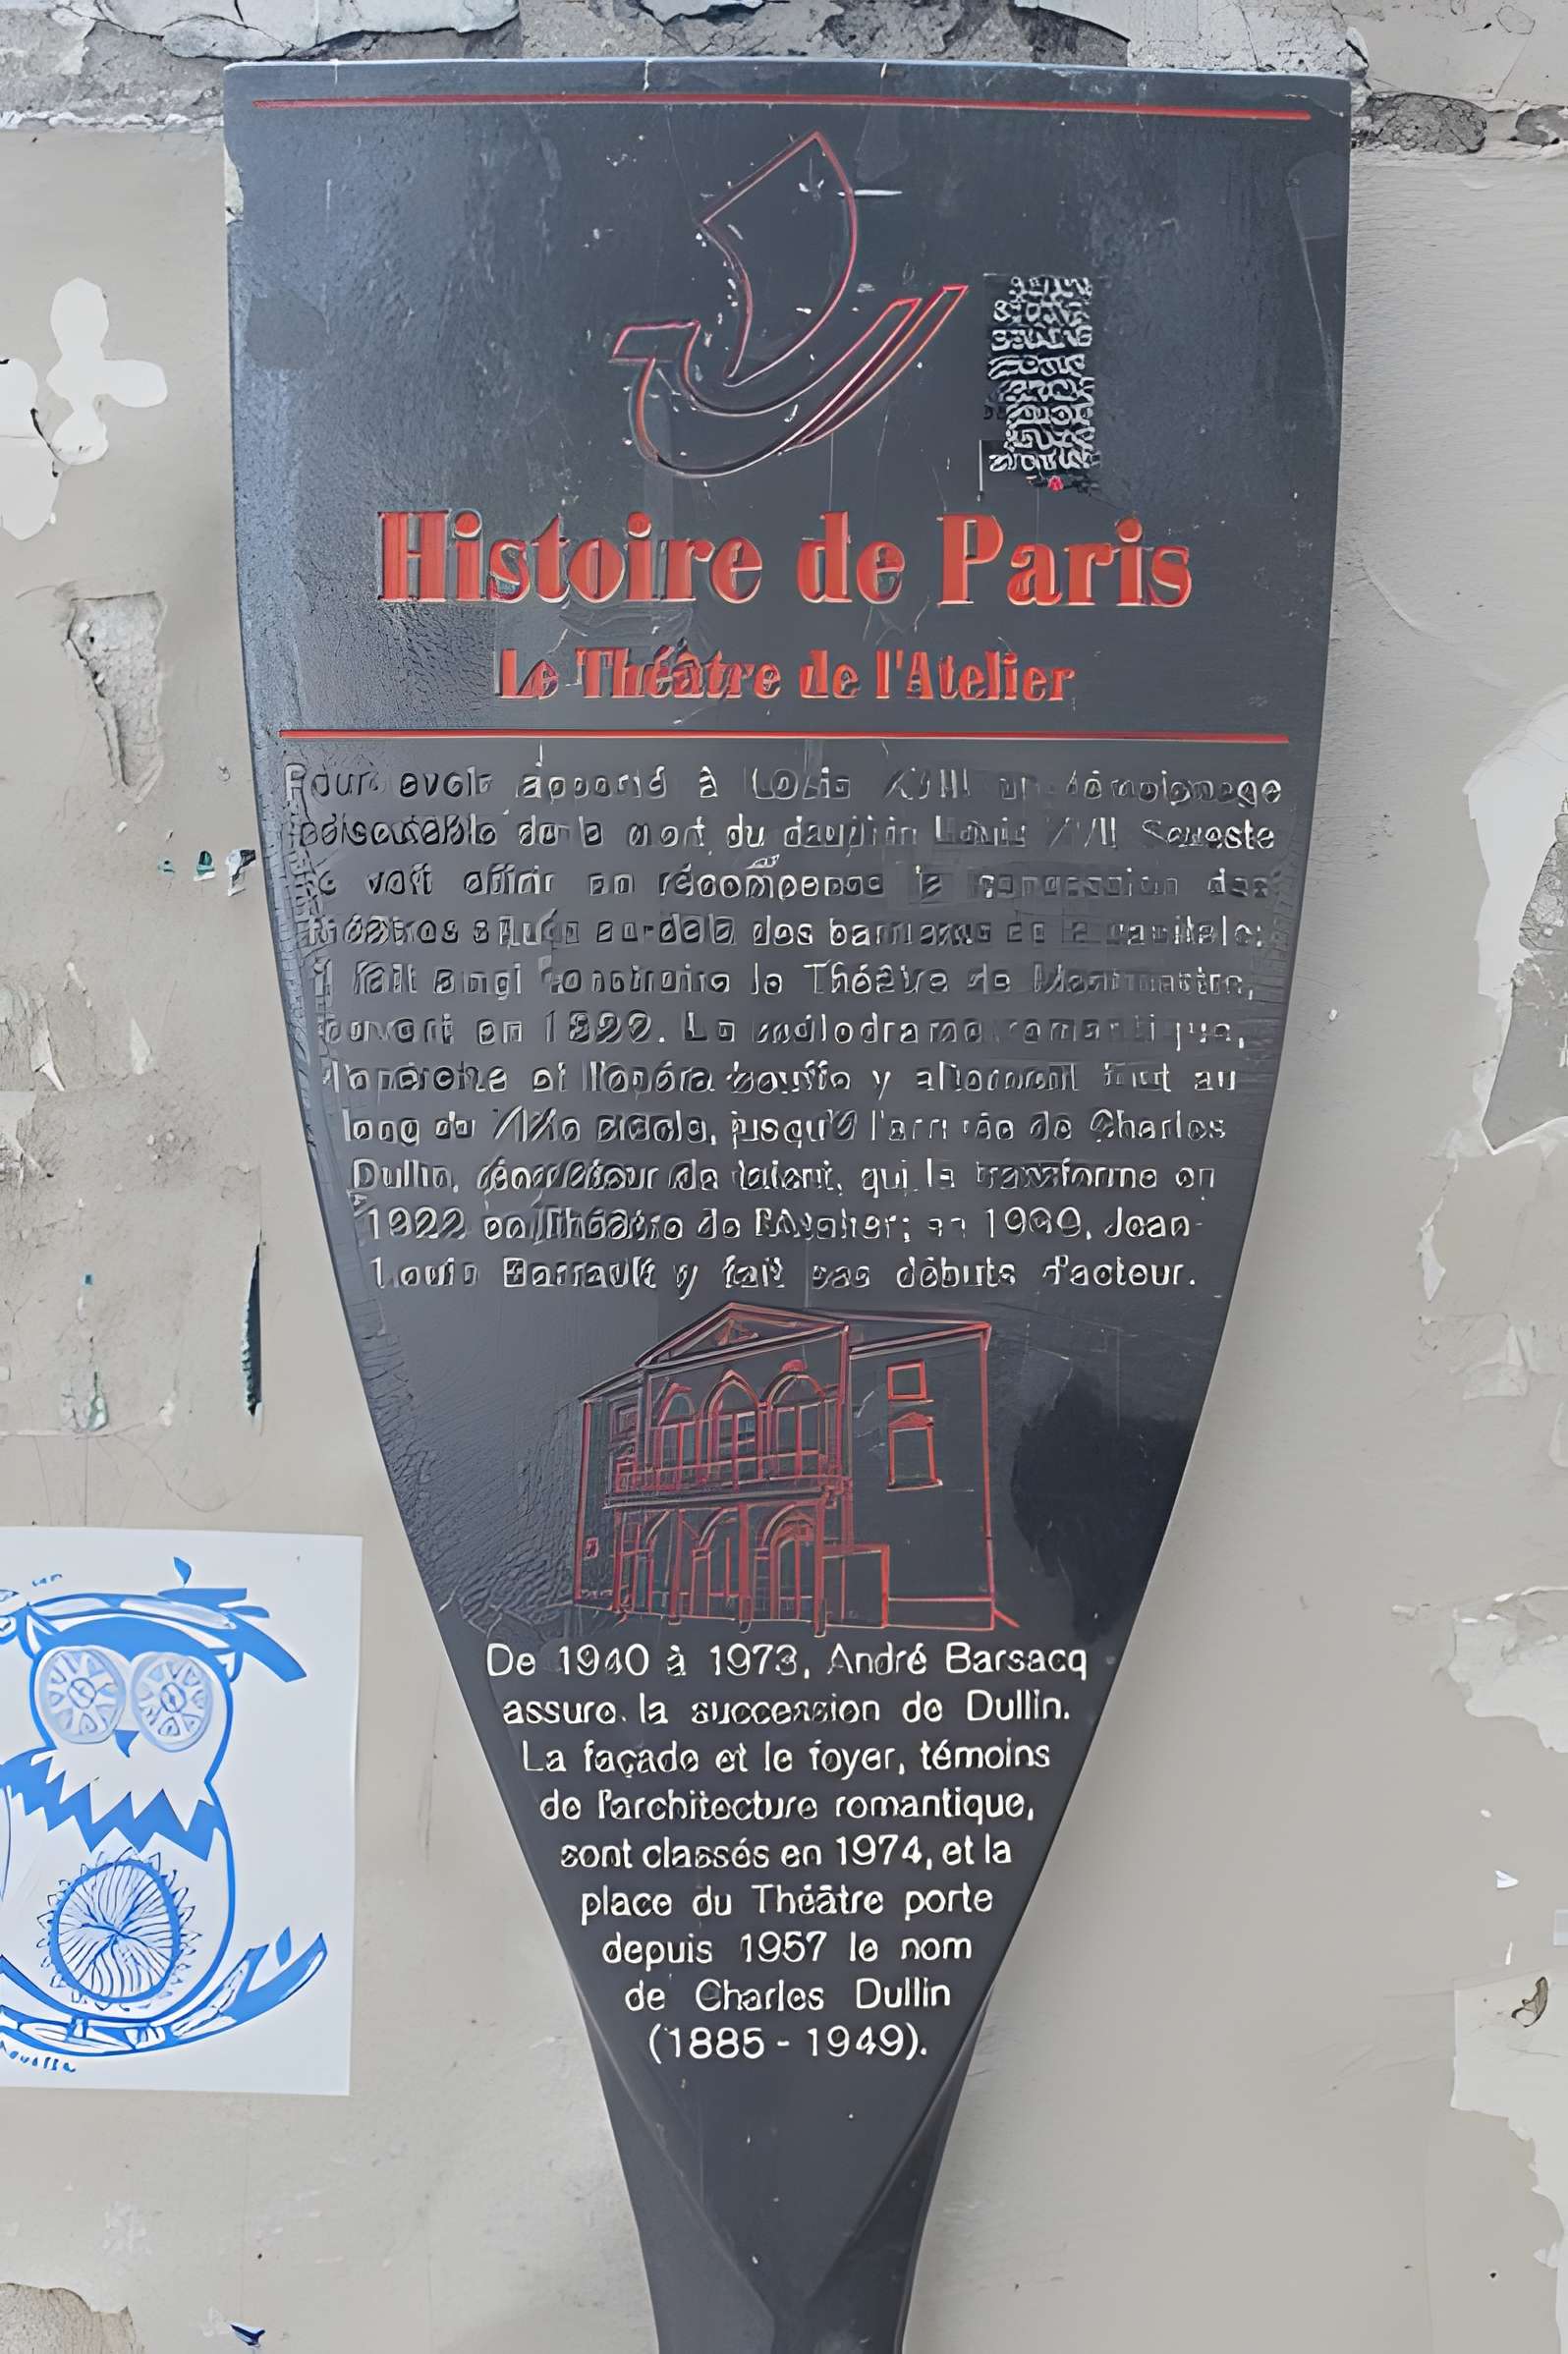 Histoire de Paris
Le Théâtre de l'Atelier
Pour avoir apporté à Louis XVIII un témoignage
indiscutable de la mort du dauphin Louis XVII Seveste
se voit offrir en récompense la concession des
théâtres situés au-delà des barrières de la capitale;
il fait ainsi construire le Théâtre de Montmartre,
ouvert en 1822. Le mélodrame romantique,
et l'opéra bouffe y alternent tout au
long du XIXe siècle, jusqu'à l'arrivée de Charles
Dullin, de talent, qui le transforme en
1922 en Théâtre de l'Atelier; en Jean-
Louis Barrault y fait ses débuts d'acteur.
De 1940 à 1973, André Barsacq
assure la succession de Dullin.
La façade et le foyer, témoins
de l'architecture romantique,
sont classés en 1974, et la
place du Théâtre porte
depuis 1957 le nom
de Charles Dullin
(1885 - 1949).